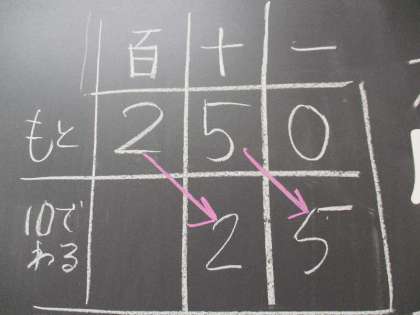 百 十 一
もと 2 5 0
10で
わる 2 5